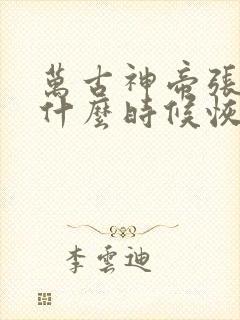 萬古神帝張
什麼時候恢
李雲迪